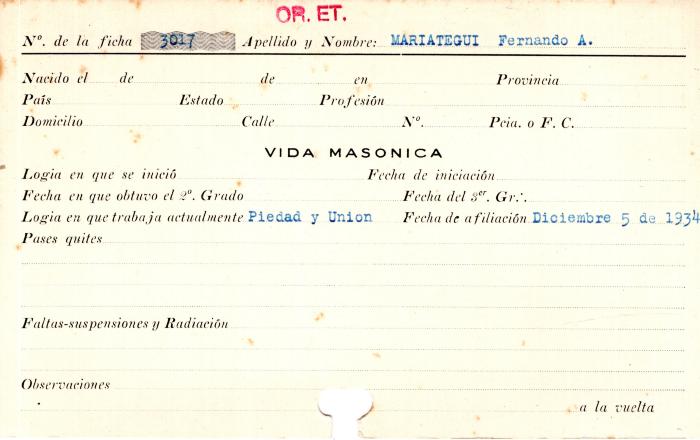 OR. ET.
Nº. de la ficha 3017 Apellido y Nombre: MARIATEGUI Fernando A.
Nacido el de de en Provincia
País Estado Profesión
Domicilio Calle Nº. Pcia. o F. C.
VIDA MASONICA
Logia en que se inició Fecha de iniciación
Fecha en que obtuvo el 2º. Grado Fecha del 3er. Gr∴.
Logia en que trabaja actualmente Piedad y Union Fecha de afiliación Diciembre 5 de 1934
Pases quites
Faltas-suspensiones y Radiación
Observaciones
a la vuelta